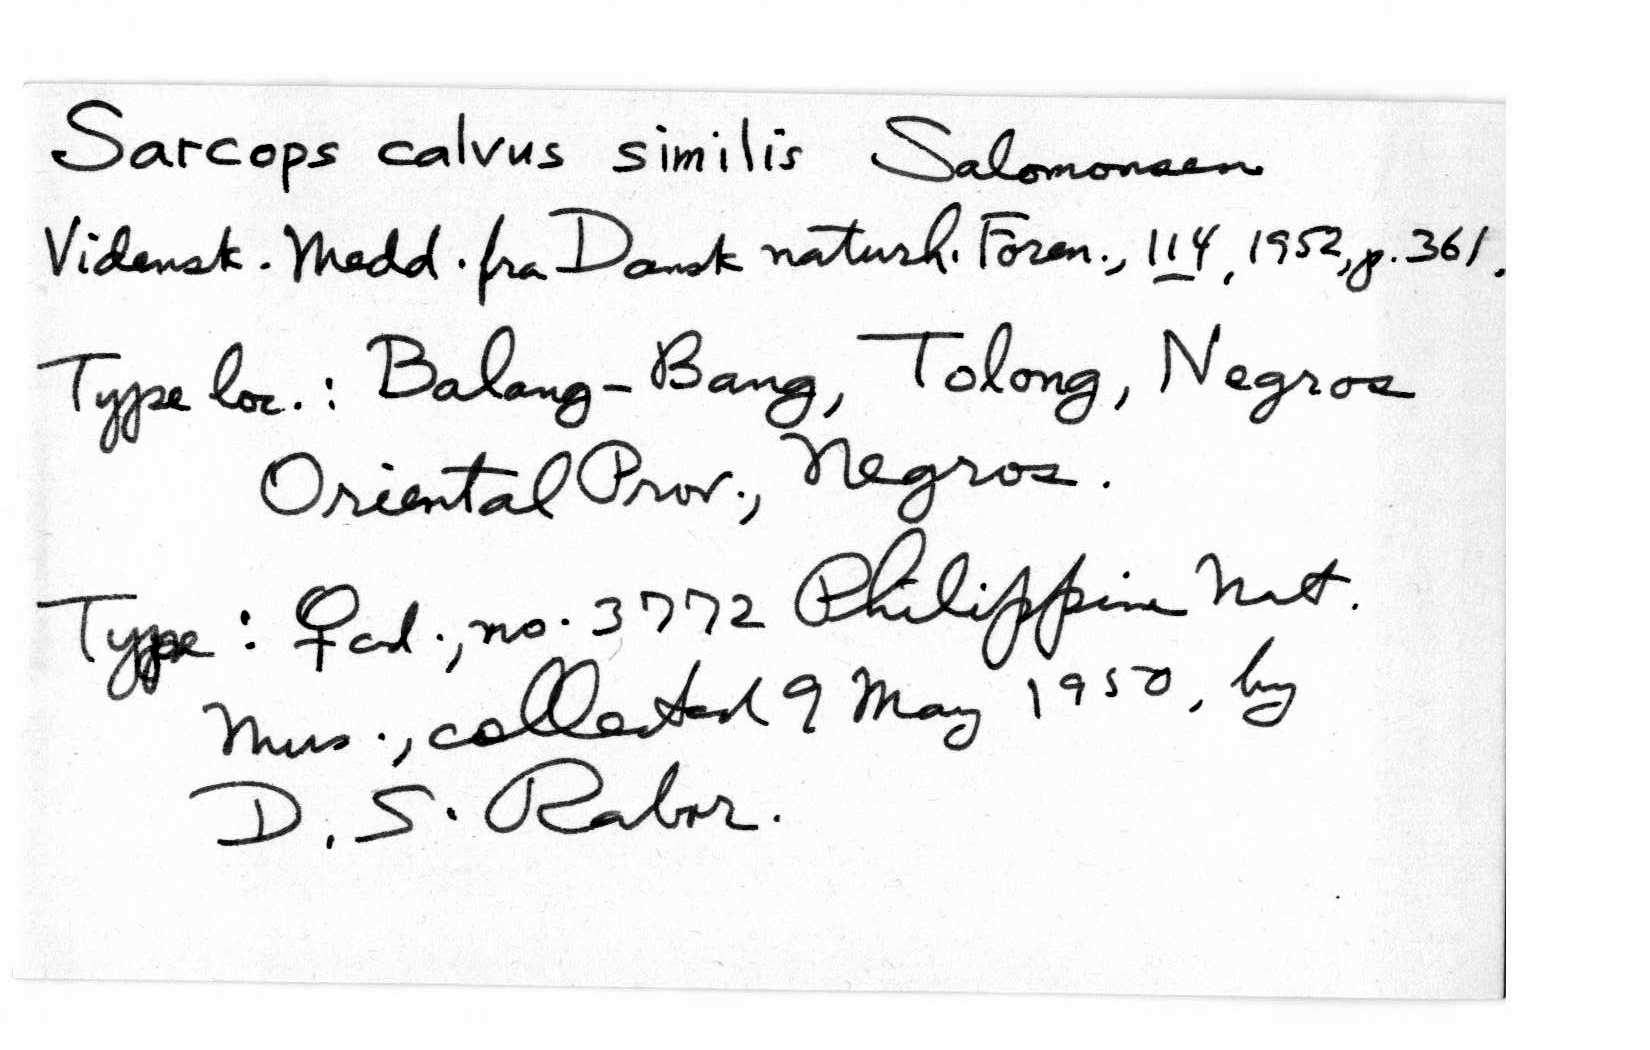 Sarcops calvus similis Salomonsen
Vidensk. Medd. fra Dansk naturh. Foren., 114, 1952, p. 361.
Type loc.: Balang-Bang, Tolong, Negros
Oriental Prov., Negros.
Type: ♀ ad., no. 3772 Philippine Nat.
Mus., collected 9 May 1950, by
D. S. Rabor.